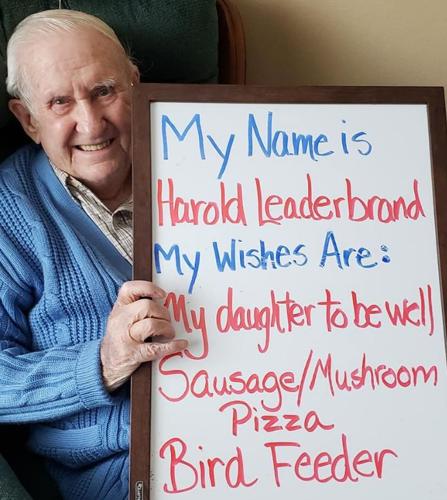 My Name is
Harold Leaderbrand
My Wishes Are:
My daughter to be well
Sausage/Mushroom
Pizza
Bird Feeder